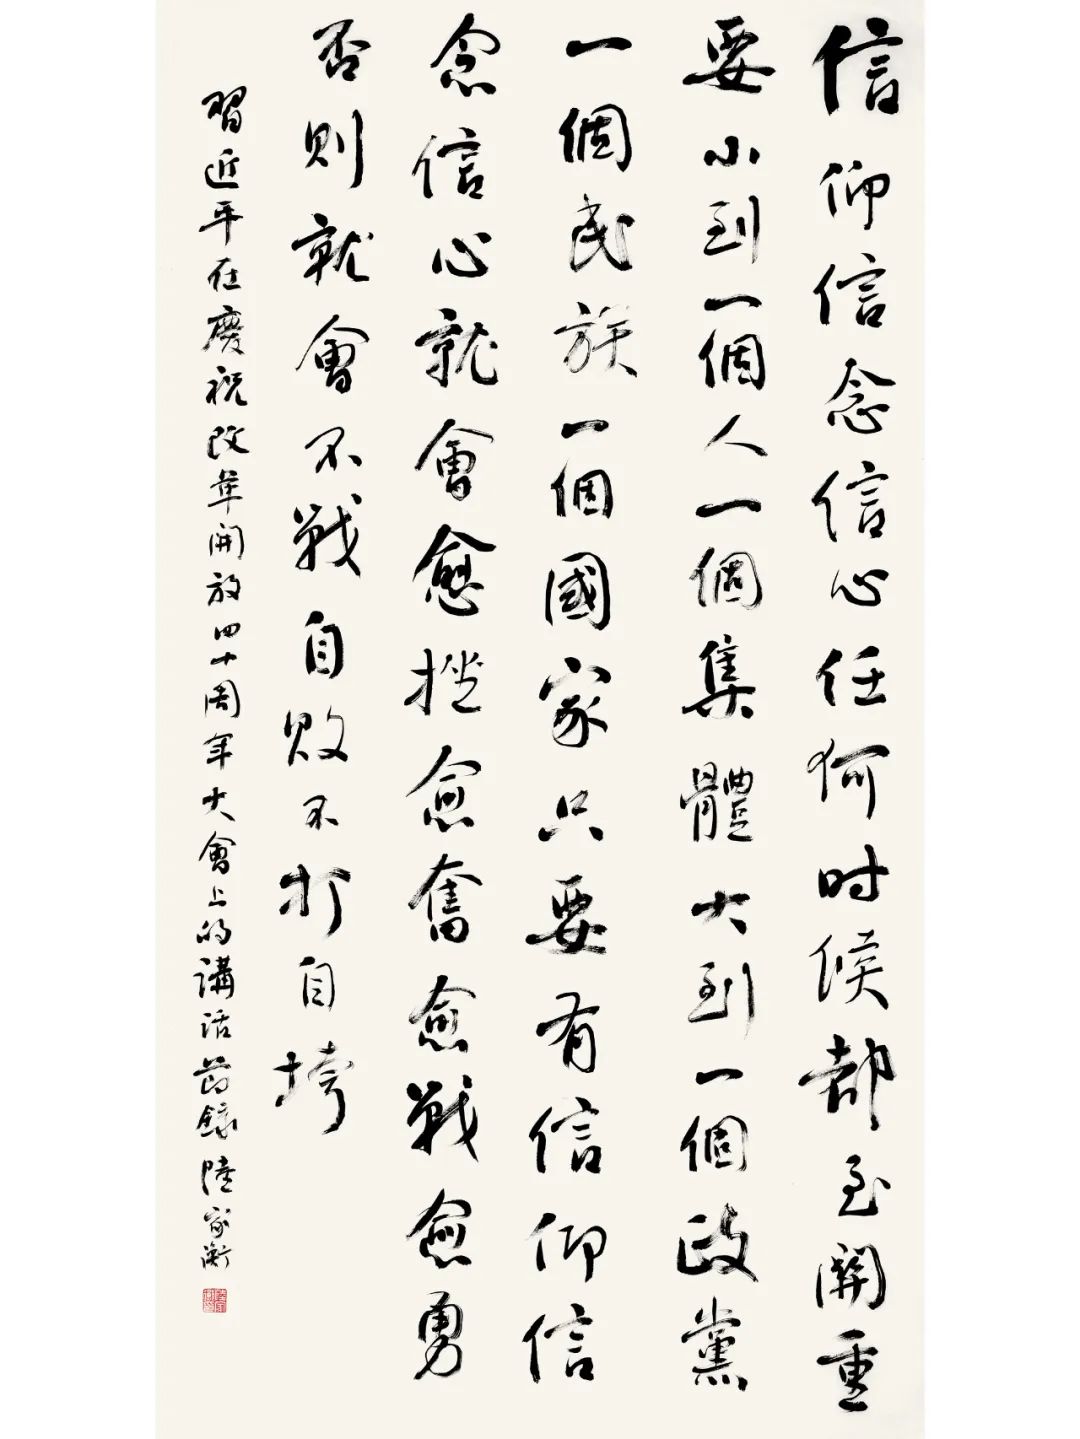 信仰信念信心任何时候都至關重
要小到一個人一個集體大到一個政黨
一個民族一個國家只要有信仰信
念信心就會愈挫愈奮愈戰愈勇
否則就會不戰自敗不打自垮
習近平在慶祝改革開放四十周年大會上的講話節錄陸家衡